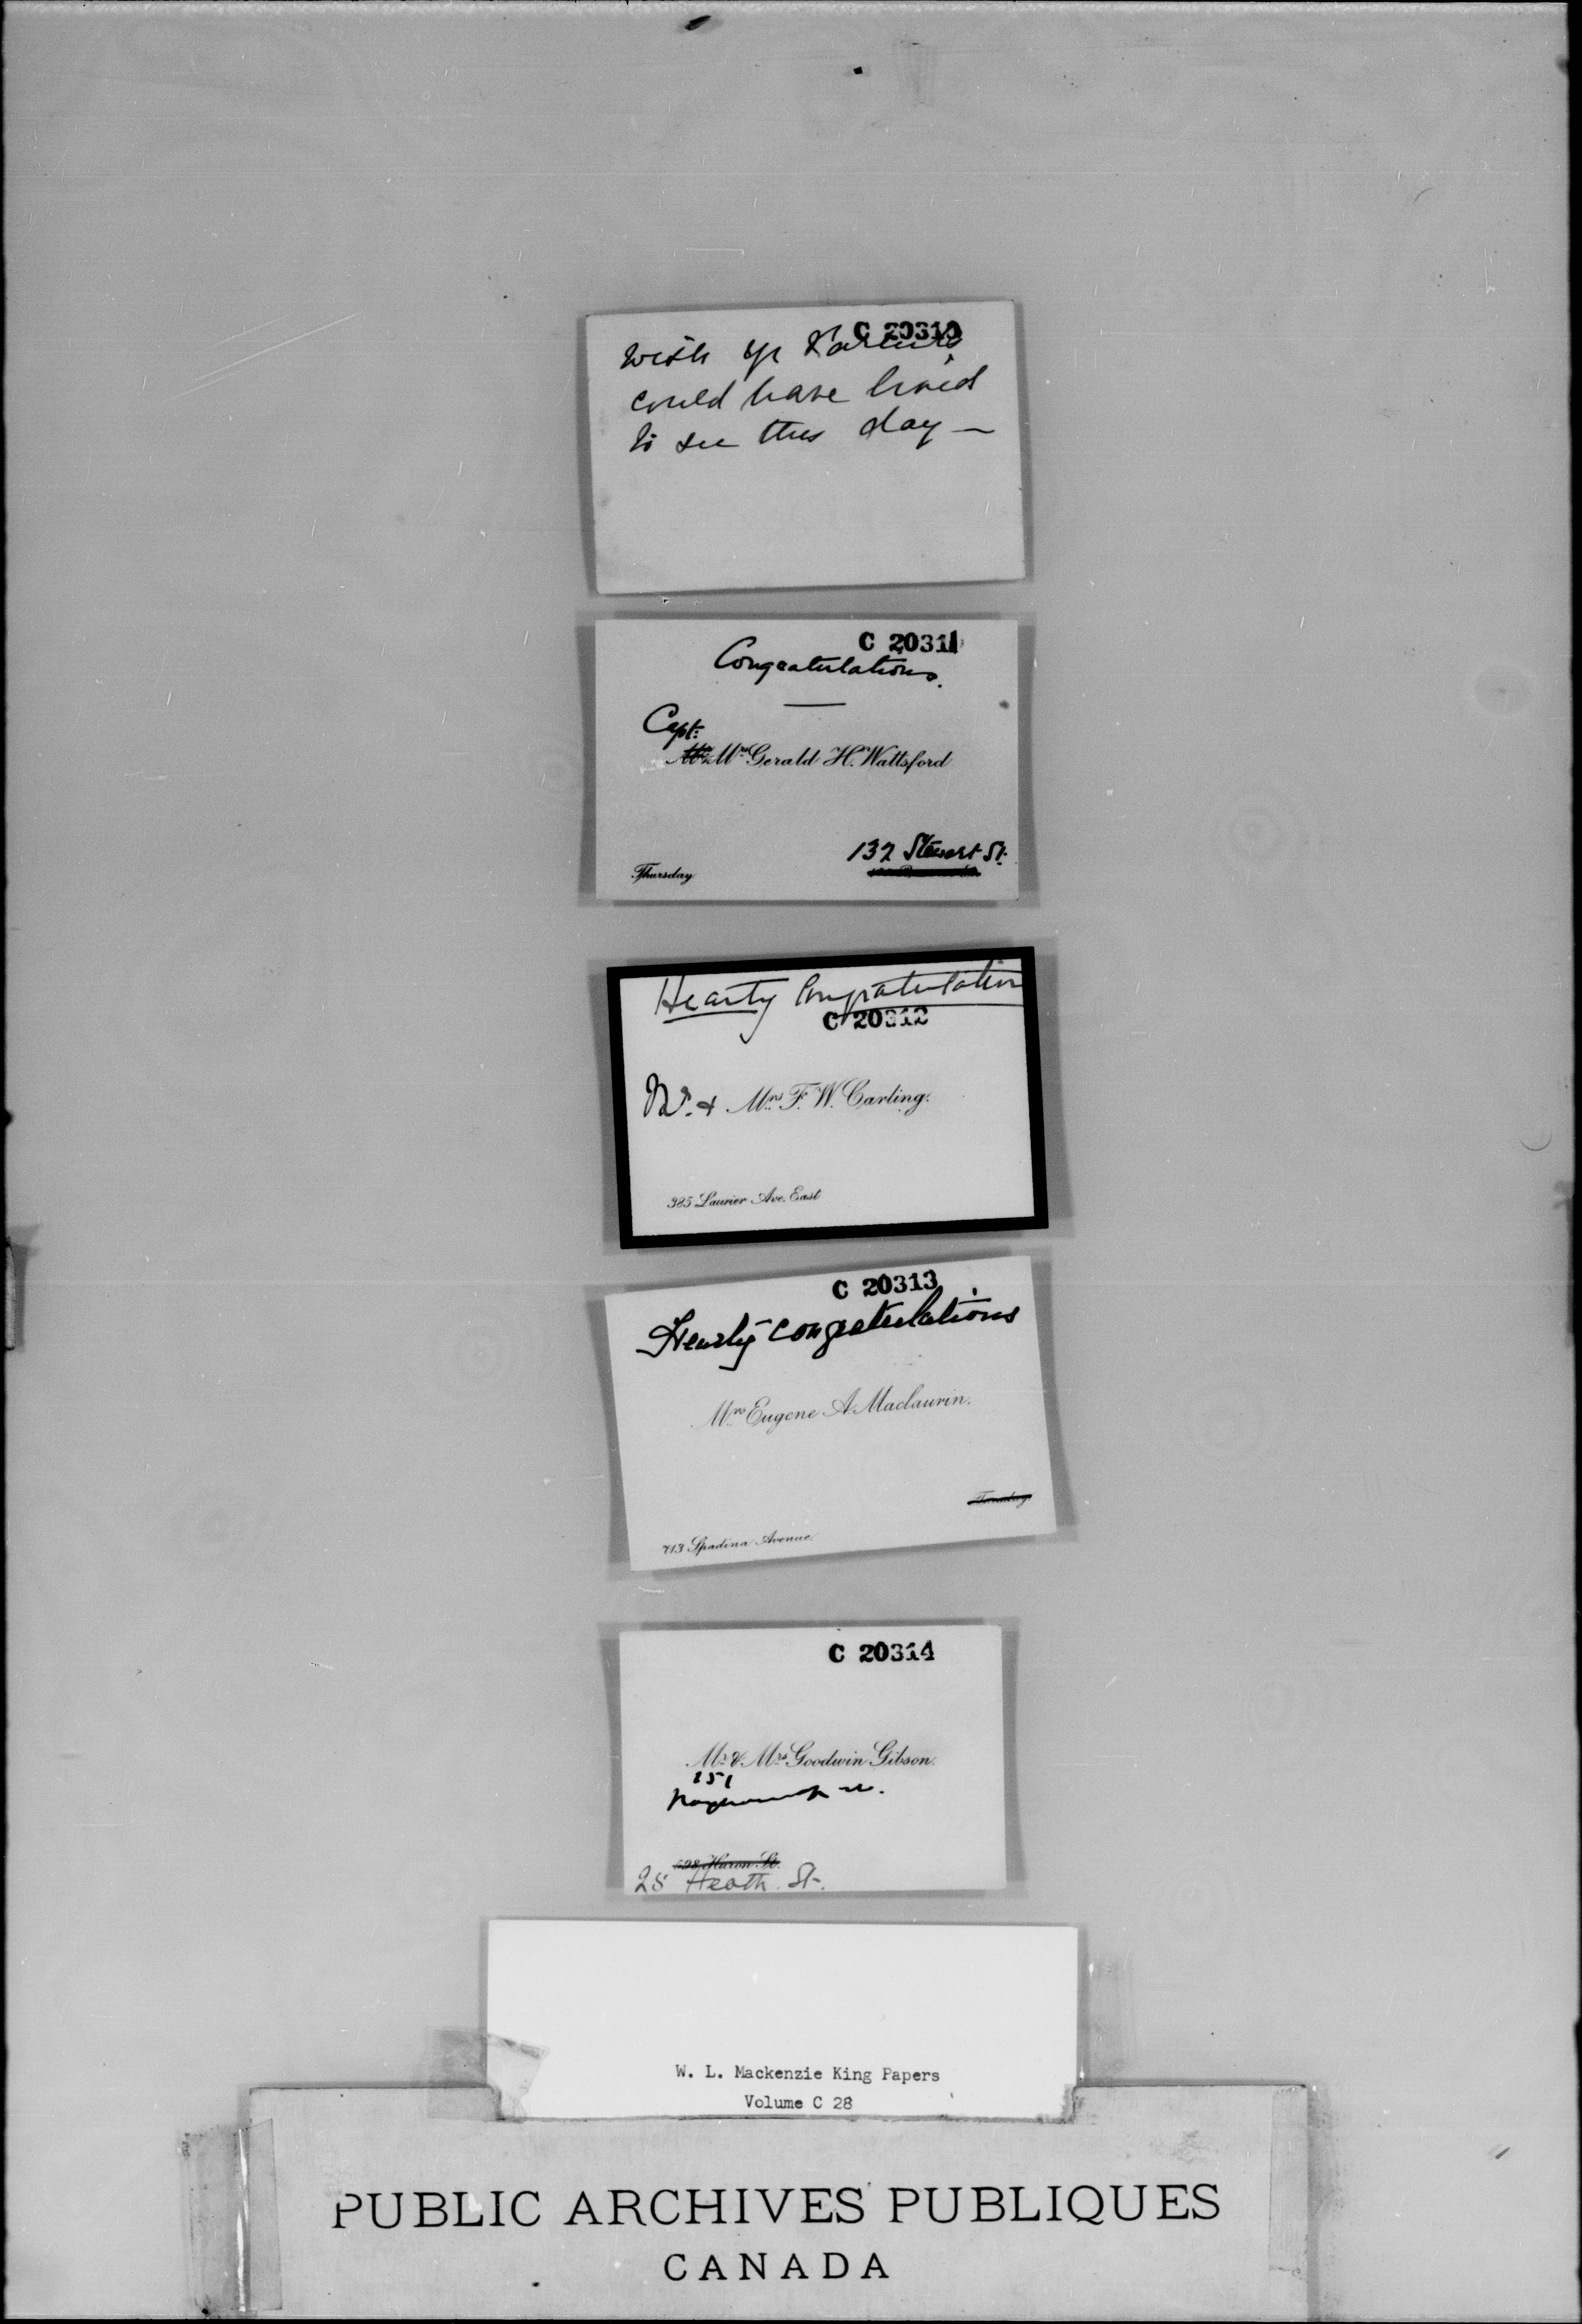 C 20310
Wish yr Parents
could have lived
to see this day —
C 20311
Congratulations.
Capt:
Mrs Gerald H. Wattsford
132 Stewart St.
Thursday
Hearty Congratulation
C 20312
Mr. & Mrs F. W. Carling.
385 Laurier Ave. East
C 20313
Hearty congratulations
Mrs Eugene A. Maclaurin.
713 Spadina Avenue
C 20314
Mr & Mrs Goodwin Gibson.
151
Huron St.
28 Heath St.
W. L. Mackenzie King Papers
Volume C 28
PUBLIC ARCHIVES PUBLIQUES
CANADA